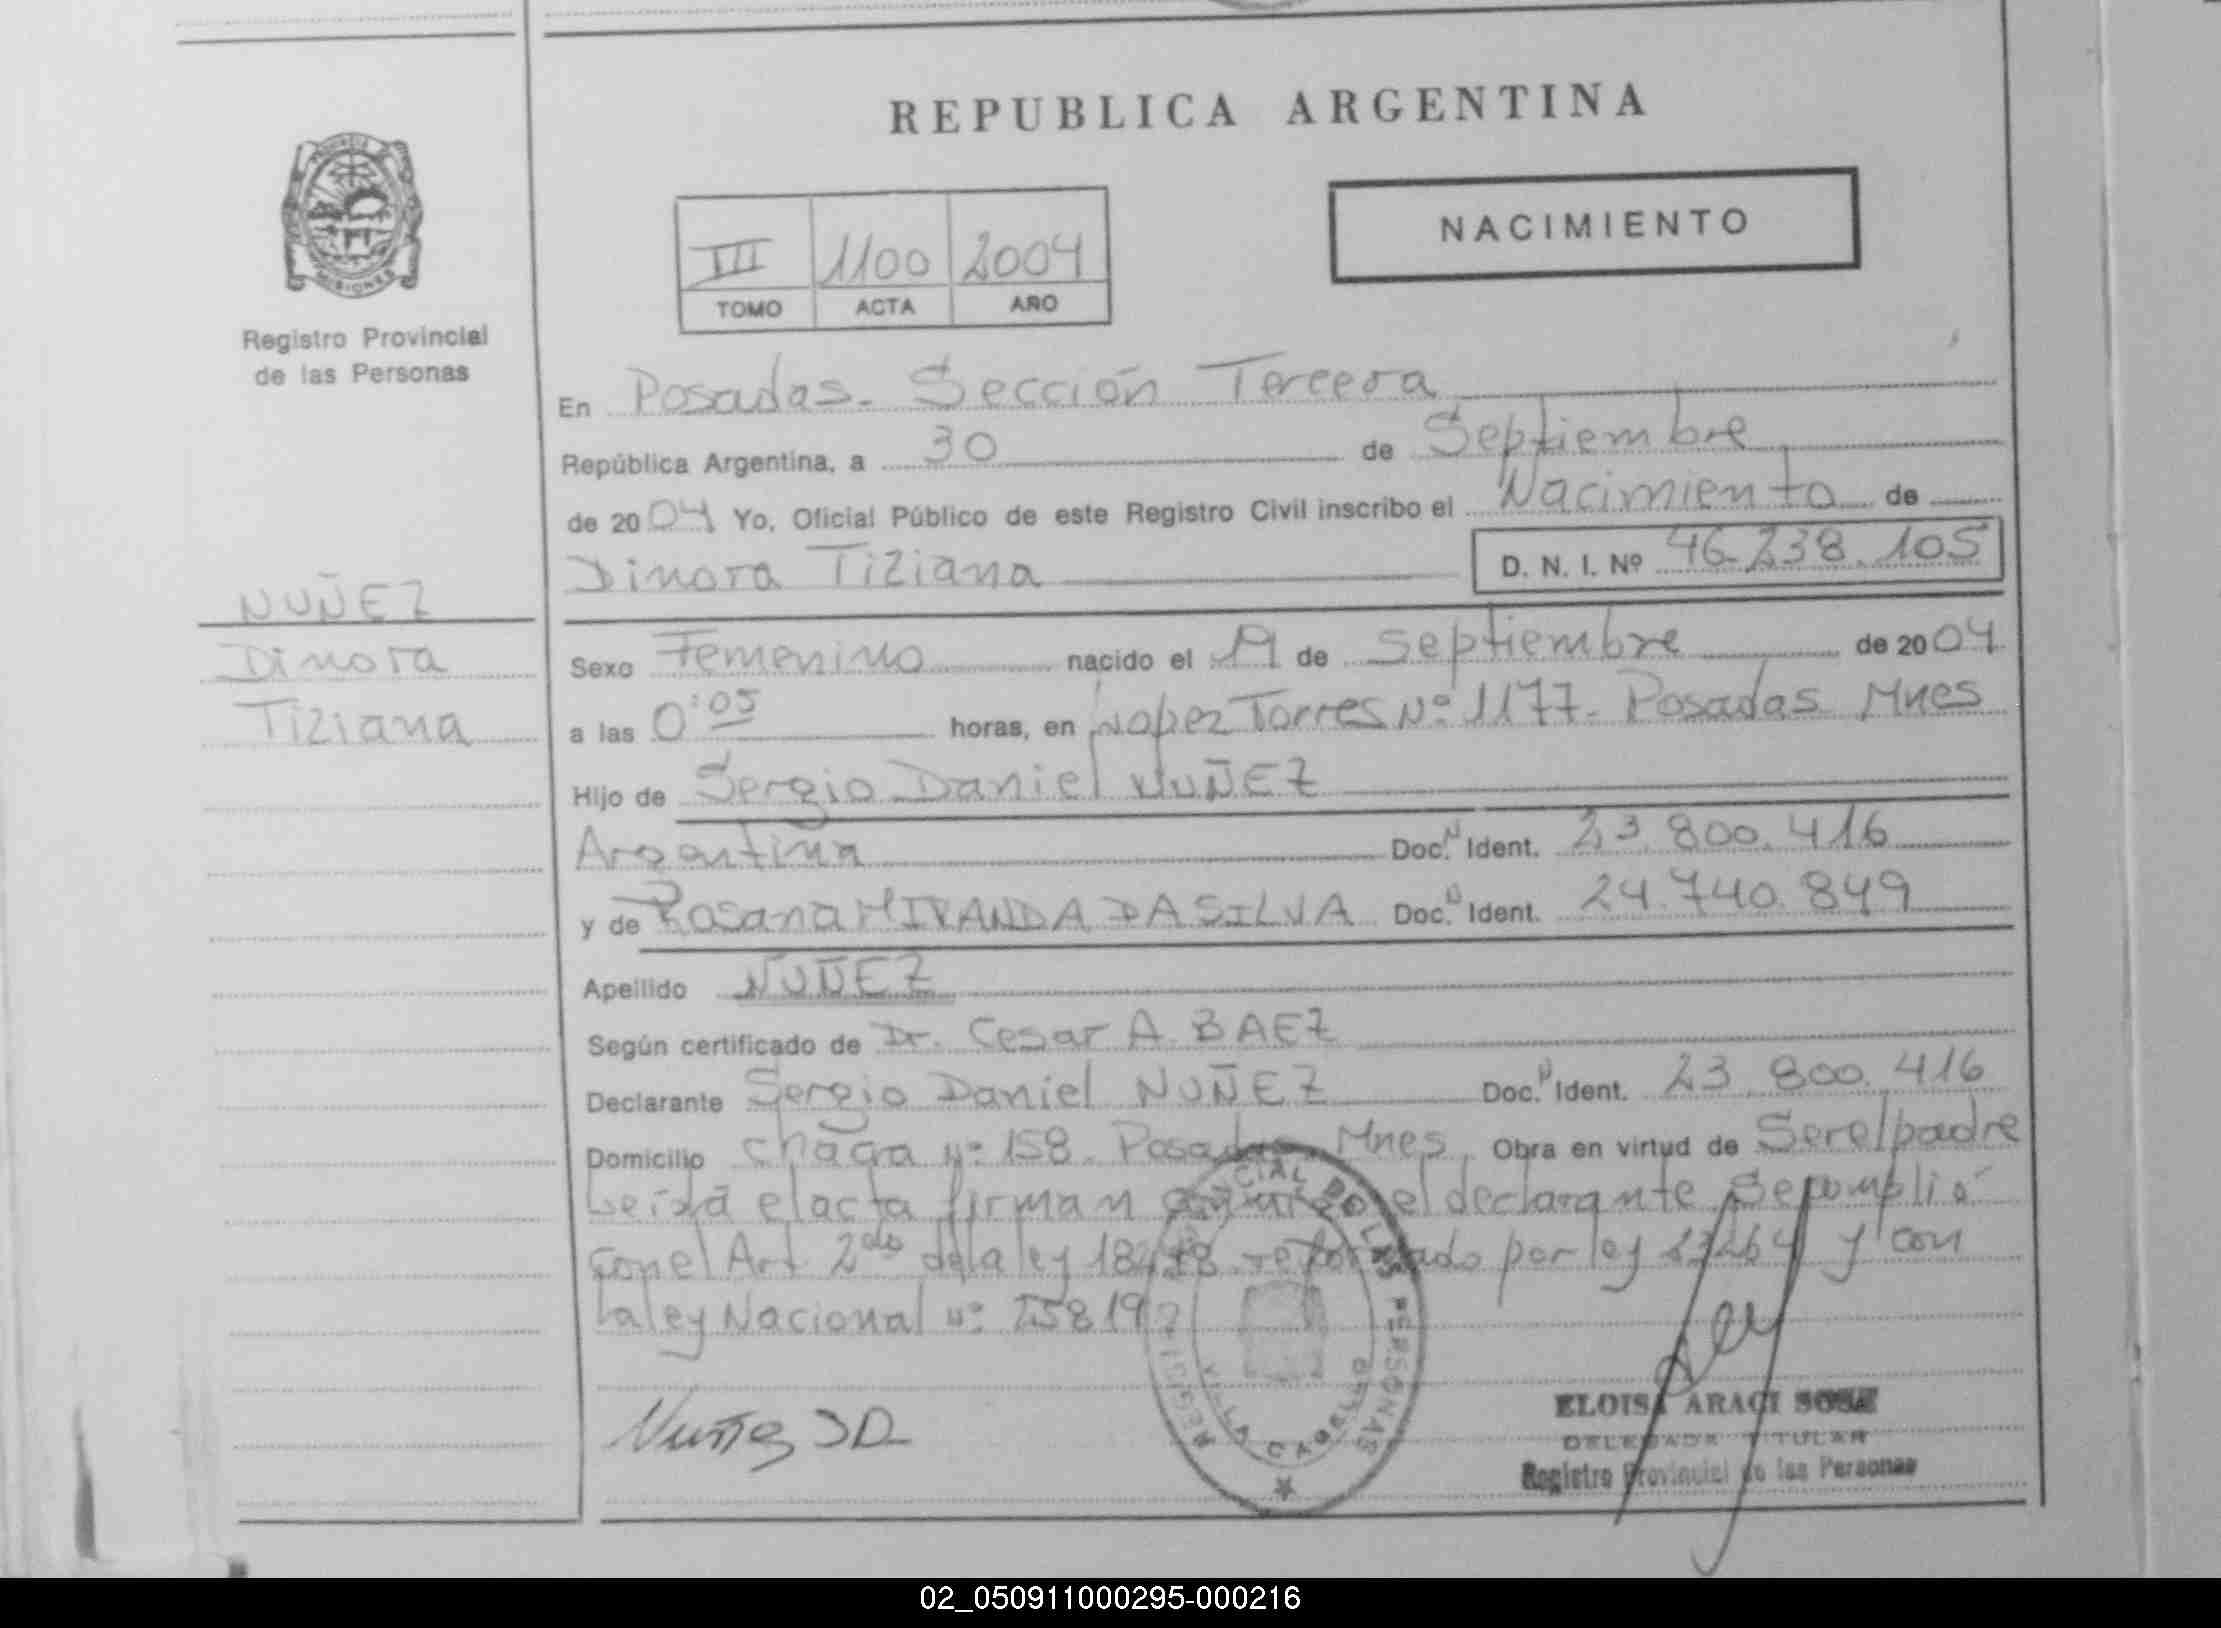 REPUBLICA ARGENTINA
PROVINCIA DE
MISIONES
Registro Provincial
de las Personas
III 1100 2004
TOMO ACTA AÑO
NACIMIENTO
En Posadas. Sección Tercera
República Argentina, a 30 de Septiembre
de 2004 Yo, Oficial Público de este Registro Civil inscribo el Nacimiento de
Dinora Tiziana D. N. I. Nº 46.238.105
NUÑEZ
Dinora
Tiziana
Sexo Femenino nacido el 19 de Septiembre de 2004
a las 0:05 horas, en Lopez Torres Nº 1177. Posadas Mnes
Hijo de Sergio Daniel NUÑEZ
Argentina Doc. N Ident. 23.800.416
y de Rosana MIRANDA DA SILVA Doc. N Ident. 24.740.849
Apellido NUÑEZ
Según certificado de Dr. Cesar A. BAEZ
Declarante Sergio Daniel NUÑEZ Doc. N Ident. 23.800.416
Domicilio Chaga Nº 158. Posadas Mnes Obra en virtud de Ser el padre
Leída el acta firman el declarante Se cumplió
con el Art 2do de la ley reformado por ley y con
la ley Nacional nº
Nuñez SD
REGISTRO PROVINCIAL DE LAS PERSONAS
VILLA CABELLO
ELOISA ARACI SOSA
DELEGADA TITULAR
Registro Provincial de las Personas
02_050911000295-000216